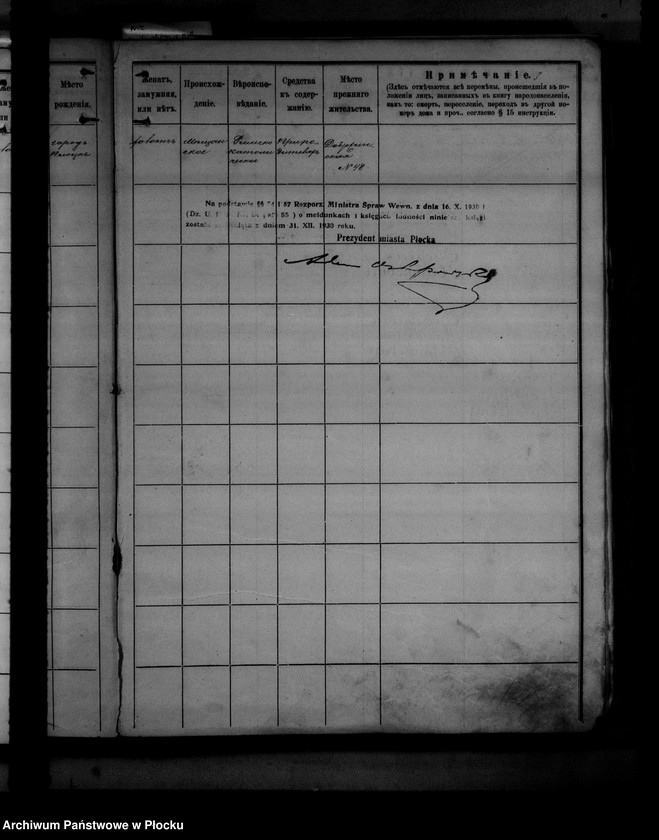 Мѣсто
рожденія.
городъ
Женатъ,
замужняя,
или нѣтъ.
Происхож-
деніе.
Вѣроиспо-
вѣданіе.
Средства
къ содер-
жанію.
Мѣсто
прежняго
жительства.
Примѣчаніе.
(Здѣсь отмѣчаются всѣ перемѣны, происшедшія въ по-
ложеніи лицъ, записанныхъ въ книгу народонаселенія,
какъ то: смерть, переселеніе, переходъ въ другой но-
меръ дома и проч., согласно § 15 инструкціи.
холостъ
Мѣщан-
ское
Римско
католи
ческое
№ 48
Na podstawie §§ i 87 Rozporz. Ministra Spraw Wewn. z dnia 16. X. 1930
(Dz. U. 55) o meldunkach i księgach ludności
została z dniem 31. XII. 1930 roku.
Prezydent miasta Płocka
Archiwum Państwowe w Płocku